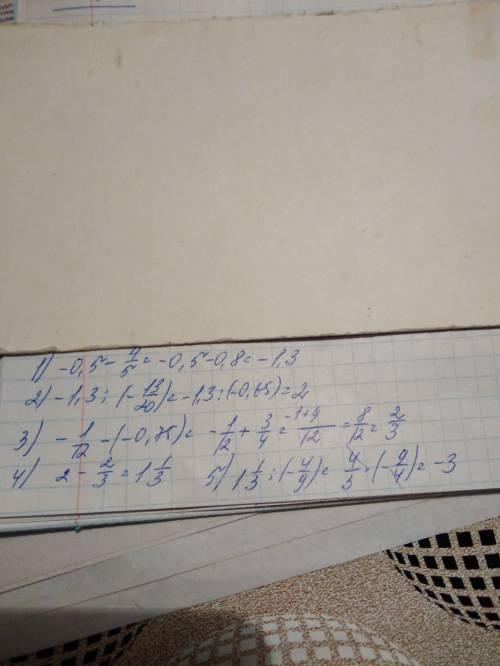 1) -0,5 - 4/5 = -0,5 - 0,8 = -1,3
2) -1,3 : (-13/20) = -1,3 : (-0,65) = 2
3) -1/12 - (-0,75) = -1/12 + 3/4 = -1+9/12 = 8/12 = 2/3
4) 2 - 2/3 = 1 1/3 5) 1 1/3 : (-4/9) = 4/3 · (-9/4) = -3